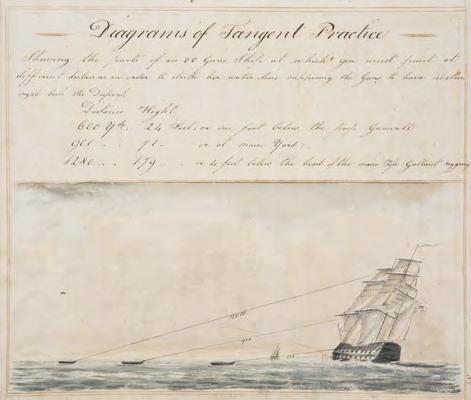 Diagrams of Tangent Practice
Shewing the points of an 80 Guns Ship at which you must point at
different distances in order to strike her water line supposing the Guns to have no other
sight but the Dispart
Distance Hight
600 Yds. 24 Feet. or one foot below the Gunwall
900 .. 71 .. or at main Yard:
1280 .. 179 .. or 4 feet below the head of the main Top Gallant rigging
1280
900